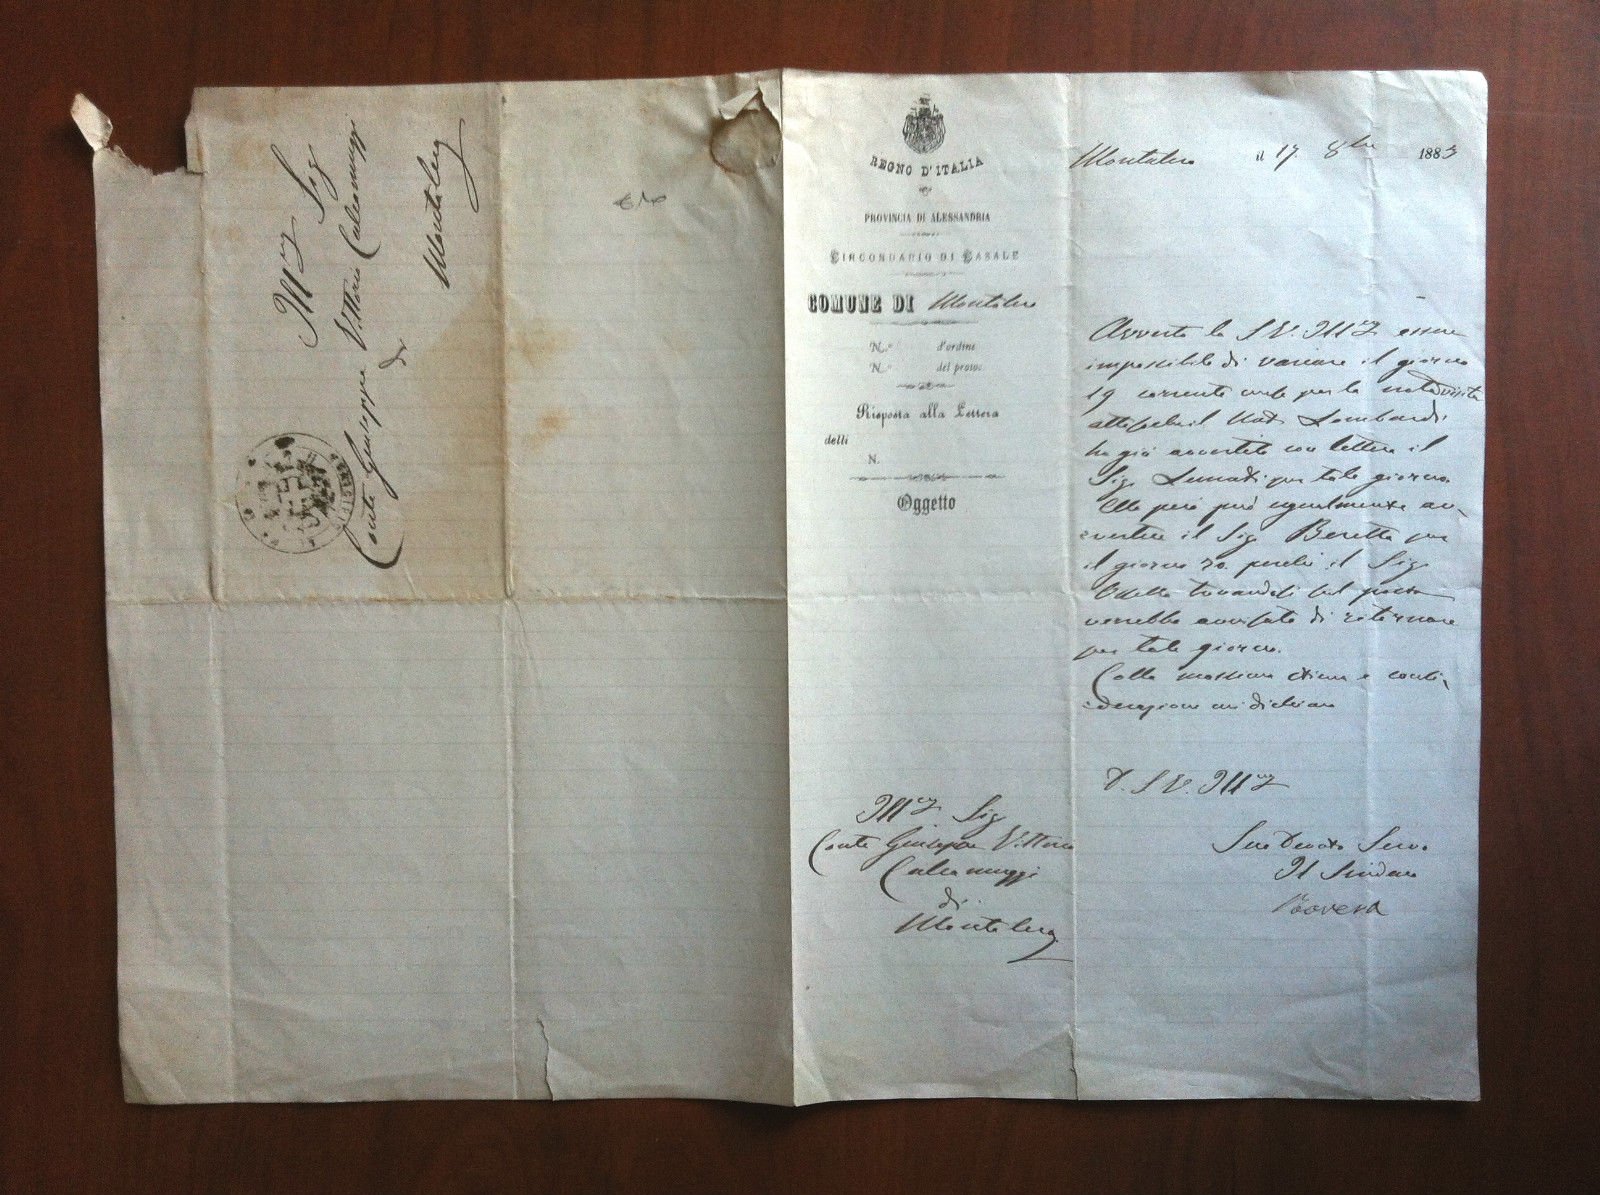 Ill.mo Sig
Conte Giuseppe Vittorio Calcamuggi
di
Montalero
REGNO D'ITALIA
PROVINCIA DI ALESSANDRIA
CIRCONDARIO DI CASALE
COMUNE DI Montalero
N.° d'ordine
N.° del protoc.
Risposta alla Lettera
delli
N.
Oggetto
Montalero il 17 8bre 1883
Avverto la S. V. Ill.ma essere
impossibile di variare il giorno
19 corrente per la nota visita
il Lombardi
ha già avvertito con lettera il
Sig. per tale giorno.
Ella però può egualmente av-
vertire il Sig Beretta per
il giorno 20 perché il Sig.
trovandosi sul posto
verrebbe avvisato di ritornare
per tale giorno.
Colla massima stima e consi-
derazione mi dichiaro
D. S. V. Ill.ma
Suo Devoto Servo
Il Sindaco
Bovera
Ill.mo Sig
Conte Giuseppe Vittorio
Calcamuggi
di
Montalero